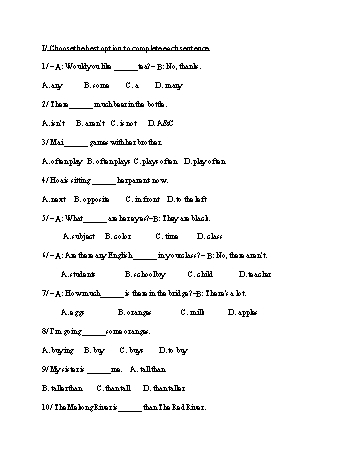 I/ Choose the best option to complete each sentence.
1/ – A: Would you like ______ tea? – B: No, thanks.
A. any B. some C. a D. many
2/ There ______ much beer in the bottle.
A. isn't B. aren't C. is not D. A&C
3/ Mai ______ games with her brother.
A. often play B. often plays C. plays often D. play often
4/ Hoa is sitting ______ her parent now.
A. next B. opposite C. in front D. to the left
5/ – A: What ______ are her eyes? –B: They are black.
A. subject B. color C. time D. class
6/ – A: Are there any English ______ in your class? – B: No, there aren't.
A. students B. schoolboy C. child D. teacher
7/ – A: How much ______ is there in the bridge? –B: There's a lot.
A. eggs B. oranges C. milk D. apples
8/ I'm going ______ some oranges.
A. buying B. buy C. buys D. to buy
9/ My sister is ______ me. A. tall than
B. taller than C. than tall D. than taller
10/ The Mekong River is ______ than The Red River.